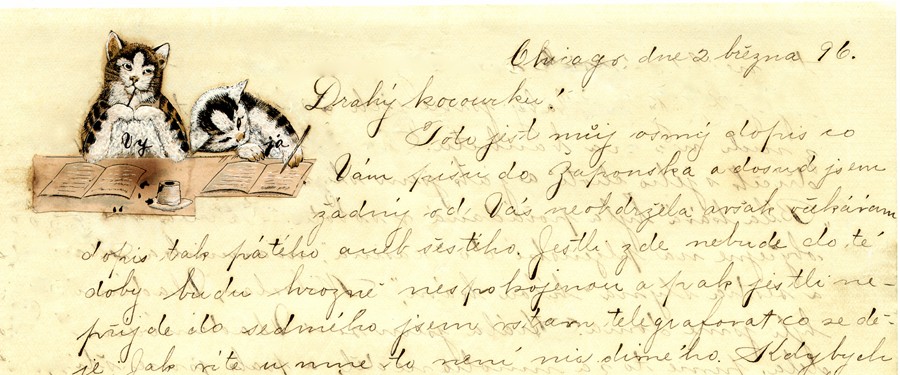 Chicago dne 2 března 96.
Drahý kocourku!
Vy
já
Toto jest můj osmý dopis co
Vám pušu do Zaponska a dosud jsem
žádný od Vás neobdržela avšak očekávám
dopis tak pátého aneb šestého. Jestli zde nebude do té
doby budu hrozně nespokojenou a pak jestli ne-
příjde do sedmého jsem v stavu telegrafovat co se dě-
je. Jak víte u mne to není nic divného. Kdybych